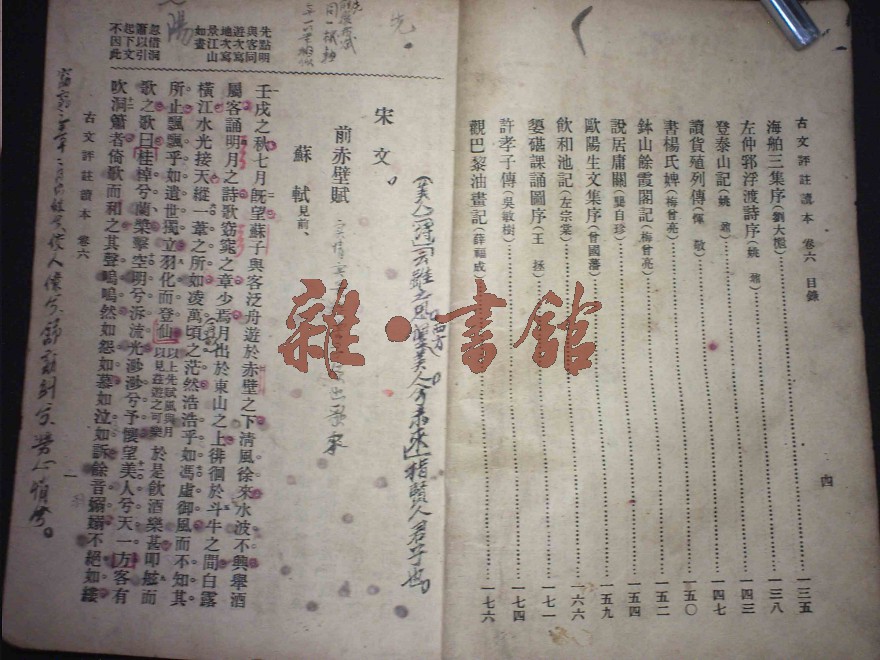 古文評註讀本 卷六 目錄
四
海舶三集序(劉大櫆)……一三五
左仲郛浮渡詩序(姚鼐)……一三八
登泰山記(姚鼐)……一四三
讀貨殖列傳(惲敬)……一四七
書楊氏婢(梅曾亮)……一五〇
鉢山餘霞閣記(梅曾亮)……一五二
說居庸關(龔自珍)……一五四
歐陽生文集序(曾國藩)……一五九
飲和池記(左宗棠)……一六六
媭碪課誦圖序(王拯)……一七一
許孝子傳(吳敏樹)……一七四
觀巴黎油畫記(薛福成)……一七六
宋文
前赤壁賦
蘇軾見前、
壬戌之秋七月既望蘇子與客泛舟遊於赤壁之下清風徐來水波不興舉酒
屬客誦明月之詩歌窈窕之章少焉月出於東山之上徘徊於斗牛之間白露
橫江水光接天縱一葦之所如凌萬頃之茫然浩浩乎如馮虛御風而不知其
所止飄飄乎如遺世獨立羽化而登仙以上先賦風與月以見益遊之可樂於是飲酒樂甚叩舷而
歌之歌曰桂棹兮蘭槳擊空明兮泝流光渺渺兮予懷望美人兮天一方客有
吹洞簫者倚歌而和之其聲嗚嗚然如怨如慕如泣如訴餘音嫋嫋不絕如縷
先點明
與客同
遊次寫
地次寫
景江山
如畫
忽借洞
簫以引
起下文
不因此
古文評註讀本 卷六
一
雜·書館